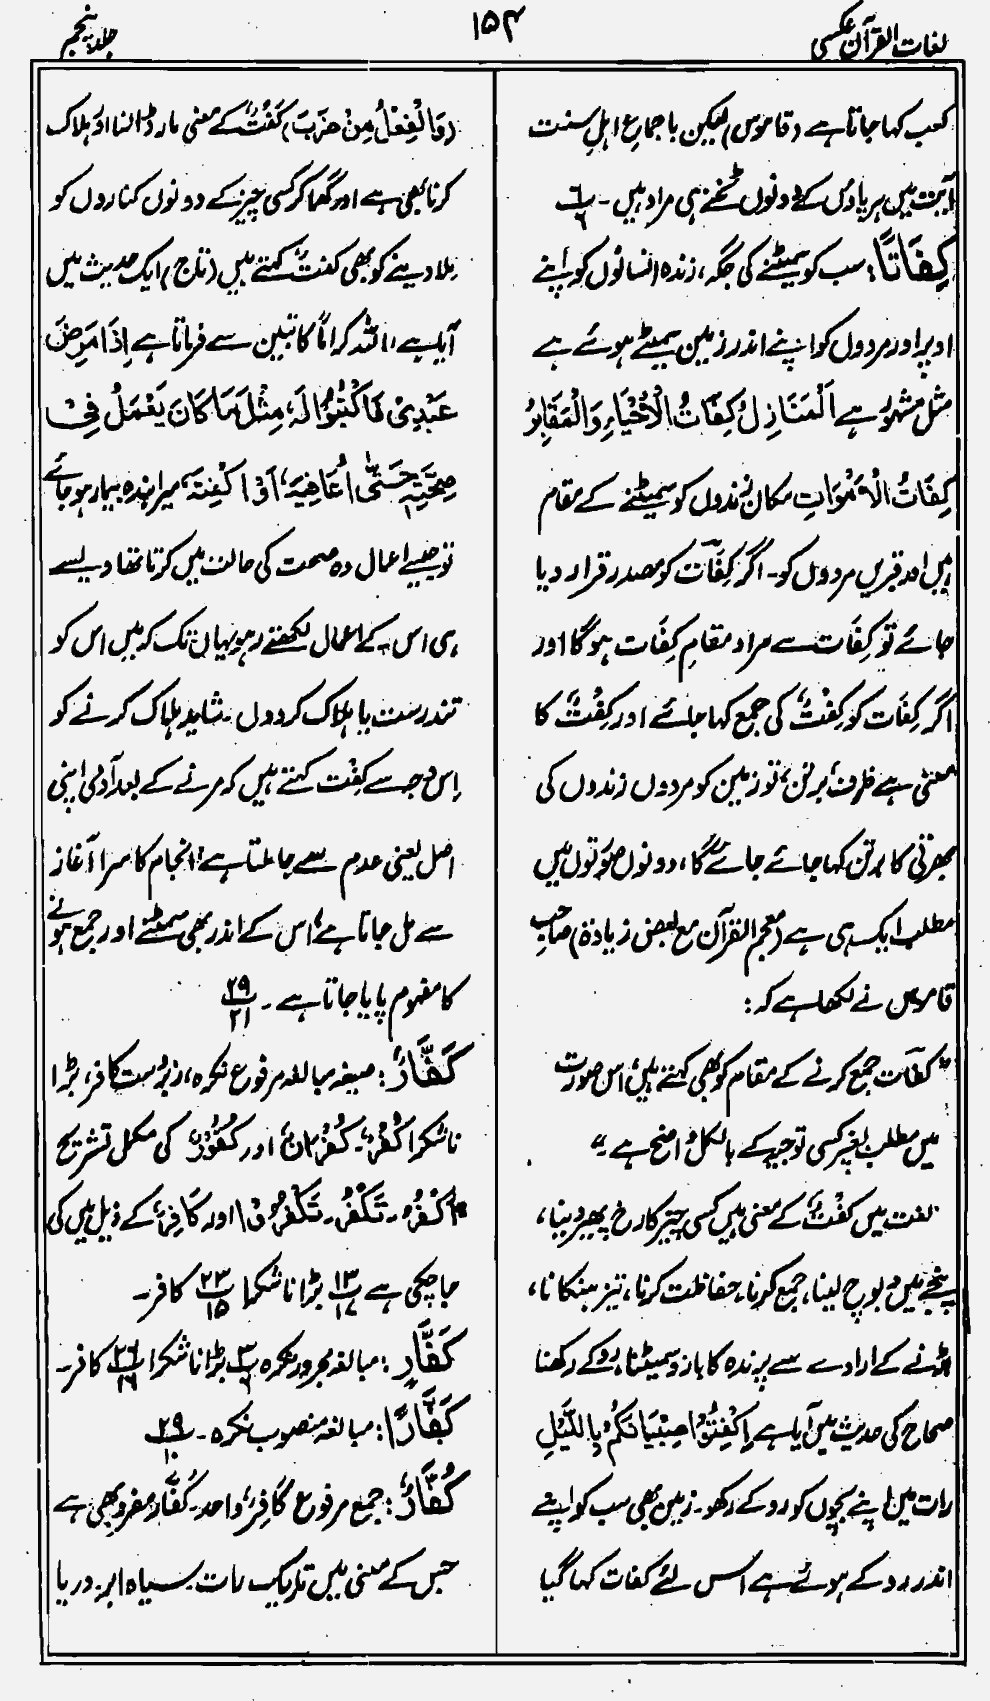 لغات القرآن عکسی
۱۵۴
جلد پنجم
کعب کہا جاتا ہے (قاموس) لیکن با جماع اہل سنت
آیت میں ہر پاؤں کے دونوں ٹخنے ہی مراد ہیں ۔ ۶/۶
کِفَاتًا: سب کو سمیٹنے کی جگہ، زندہ انسانوں کو اپنے
اوپر اور مردوں کو اپنے اندر زمین سمیٹے ہوئے ہے
مثل مشہور ہے اَلْمَنَازِلُ کِفَاتُ الْاَحْیَاءِ وَالْمَقَابِرُ
کِفَاتُ الْاَمْوَاتِ مکان زندوں کو سمیٹنے کے مقام
ہیں اور قبریں مردوں کو۔ اگر کِفَات کو مصدر قرار دیا
جائے تو کِفَات سے مراد مقامِ کِفَات ہوگا اور
اگر کِفَات کو کِفْتٌ کی جمع کہا جائے اور کِفْتٌ کا
معنی ہے ظرف، برتن، تو زمین کو مردوں زندوں کی
بھرتی کا برتن کہا جائے جائے گا، دونوں صورتوں میں
مطلب ایک ہی ہے (معجم القرآن مع بعض زیادۃ) صاحب
قاموس نے لکھا ہے کہ:
"کفات جمع کرنے کے مقام کو بھی کہتے ہیں، اس صورت
میں مطلب بغیر کسی توجیہ کے بالکل واضح ہے"
لغت میں کَفْتٌ کے معنی ہیں کسی چیز کا رخ پھیر دینا،
پنجے میں دبوچ لینا، جمع کرنا، حفاظت کرنا، نیز ہنکانا،
اڑنے کے ارادے سے پرندہ کا بازو سمیٹنا، روکے رکھنا
صحاح کی حدیث میں آیا ہے اِکْفِتُوْا صِبْیَانَکُمْ بِاللَّیْلِ
رات میں اپنے بچوں کو روکے رکھو۔ زمین بھی سب کو اپنے
اندر روکے ہوئے ہے اس لئے کفات کہا گیا
(وَالْفِعْلُ مِنْ ضَرَبَ) کَفْتٌ کے معنی مار ڈالنا اور ہلاک
کرنا بھی ہے اور گھما کر کسی چیز کے دونوں کناروں کو
ملا دینے کو بھی کفت کہتے ہیں (تاج) ایک حدیث میں
آیا ہے، اللہ کراماً کاتبین سے فرماتا ہے اِذَا مَرِضَ
عَبْدِیْ فَاکْتُبُوْا لَہٗ مِثْلَ مَا کَانَ یَعْمَلُ فِیْ
صِحَّتِہٖ حَتّٰی اُعَافِیَہٗ اَوْ اَکْفِتَہٗ، میرا بندہ بیمار ہو جائے
تو جیسے اعمال وہ صحت کی حالت میں کرتا تھا ویسے
ہی اس کے اعمال لکھتے رہو یہاں تک کہ میں اس کو
تندرست یا ہلاک کر دوں ۔ شاید ہلاک کرنے کو
اس وجہ سے کفت کہتے ہیں کہ مرنے کے بعد آدمی اپنی
اصل یعنی عدم سے جا ملتا ہے، انجام کا سرا آغاز
سے مل جاتا ہے، اس کے اندر بھی سمٹنے اور جمع ہونے
کا مفہوم پایا جاتا ہے ۔ ۲۹/۲۱
کَفَّارٌ: صیغہ مبالغہ مرفوع نکرہ، زبردست کافر، بڑا
ناشکرا کُفْرٌ۔ کُفْرَانٌ اور کُفُوْرٌ کی مکمل تشریح
اَکْفُرُ۔ تَکْفُرُ۔ تَکْفُرُوْنَ اور کَافِرٌ کے ذیل میں کی
جا چکی ہے ۱۳/۱۷ بڑا ناشکرا ۲۳/۱۵ کافر۔
کَفَّارٍ: مبالغہ مجرور نکرہ ۳/۶ بڑا ناشکرا ۲۶/۱۶ کافر۔
کَفَّارًا: مبالغہ منصوب نکرہ ۔ ۲۹/۱۰
کُفَّارٌ: جمع مرفوع کَافِرٌ واحد۔ کُفَّارٌ مفرد بھی ہے
جس کے معنی ہیں تاریک رات، سیاہ ابر، دریا